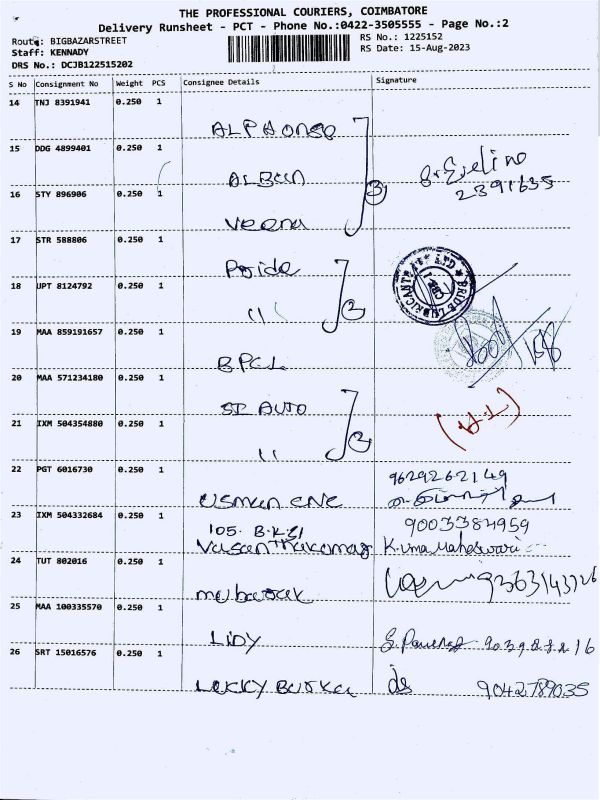 THE PROFESSIONAL COURIERS, COIMBATORE
Delivery Runsheet - PCT - Phone No.:0422-3505555 - Page No.:2
Route: BIGBAZARSTREET
Staff: KENNADY
DRS No.: DCJB122515202
RS No.: 1225152
RS Date: 15-Aug-2023
S No Consignment No Weight PCS Consignee Details Signature
14 TNJ 8391941 0.250 1 ALPHONSO
15 DDG 4899401 0.250 1 ALBEEN
3
S. Evelino
2391635
16 STY 896906 0.250 1 Veena
17 STR 588806 0.250 1 Pride
18 UPT 8124792 0.250 1 "
2
PRIDE LUBRICANTS PVT LTD
19 MAA 859191657 0.250 1 BPCL
20 MAA 571234180 0.250 1 ST AUTO
21 IXM 504354880 0.250 1 "
2
22 PGT 6016730 0.250 1 USMAN CNC
9629262149
23 IXM 504332684 0.250 1 105. B.K.St
Vasanthakumar
9003384959
K. Uma Maheswari
24 TUT 802016 0.250 1 mubarak
9363143726
25 MAA 100335570 0.250 1 LIDY
26 SRT 15016576 0.250 1 LUKKY BURKA
9042789035